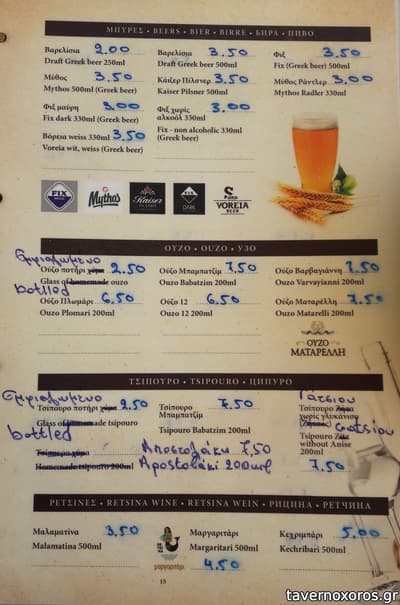 ΜΠΥΡΕΣ • BEERS • BIER • BIRRE • БИРА • ПИВО
Βαρελίσια 2.00
Draft Greek beer 250ml
Βαρελίσια 3.50
Draft Greek beer 500ml
Φιξ 3.50
Fix (Greek beer) 500ml
Μύθος 3.50
Mythos 500ml (Greek beer)
Κάιζερ Πίλσνερ 3.50
Kaiser Pilsner 500ml
Μύθος Ράντλερ 3.00
Mythos Radler 330ml
Φιξ μαύρη 3.00
Fix dark 330ml (Greek beer)
Φιξ χωρίς
αλκοόλ 330ml 3.00
Fix - non alcoholic 330ml
(Greek beer)
Βόρεια weiss 330ml 3,50
Voreia wit, weiss (Greek beer)
FIX
Mythos
Kaiser
FIX
DARK
VOREIA
BEER
ΟΥΖΟ • OUZO • УЗО
Εμφιαλωμενο
Ούζο ποτήρι χύμα 2.50
Glass of homemade ouzo
bottled
Ούζο Μπαμπατζίμ 7,50
Ouzo Babatzim 200ml
Ούζο Βαρβαγιάννη 7.50
Ouzo Varvayianni 200ml
Ούζο Πλωμάρι 6.50
Ouzo Plomari 200ml
Ούζο 12 6.50
Ouzo 12 200ml
Ούζο Ματαρέλλη 7.50
Ouzo Matarelli 200ml
ΟΥΖΟ
ΜΑΤΑΡΕΛΛΗ
ΤΣΙΠΟΥΡΟ • TSIPOURO • ЦИПУРО
Εμφιαλωμενο
Τσίπουρο ποτήρι χύμα 2,50
Glass of homemade tsipouro
bottled
Τσίπουρο
Μπαμπατζίμ 7.50
Tsipouro Babatzim 200ml
Γάτσιου
Τσίπουρο
χωρίς γλυκάνισο
gatsiou
Tsipouro
without Anise
200ml
7,50
Τσίπουρο χύμα
Homemade tsipouro 200ml
Αποστολάκη 7,50
Apostolaki 200ml
ΡΕΤΣΙΝΕΣ • RETSINA WINE • RETSINA WEIN • РИЦИНА • РЕТЧИНА
Μαλαματίνα 3,50
Malamatina 500ml
μαργαριτάρι
Μαργαριτάρι
Margaritari 500ml
4.50
Κεχριμπάρι 5,00
Kechribari 500ml
15
tavernoxoros.gr